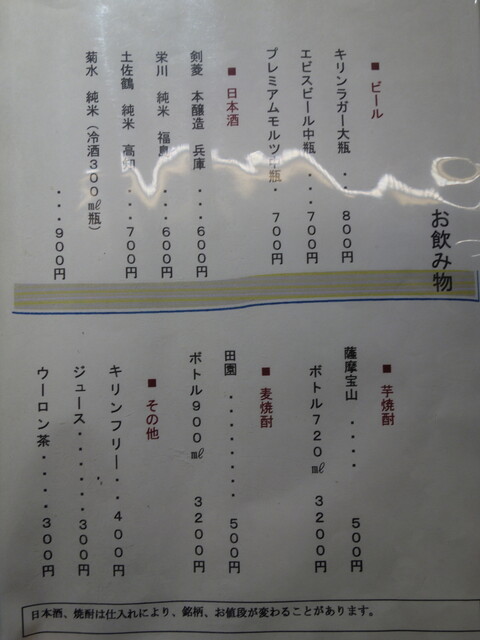 お飲み物
■ ビール
キリンラガー大瓶 ・・ 800円
エビスビール中瓶・・・700円
プレミアムモルツ中瓶・ 700円
■ 日本酒
剣菱 本醸造 兵庫 ・・・600円
栄川 純米 福島 ・・・600円
土佐鶴 純米 高知 ・・・700円
菊水 純米（冷酒300㎖瓶）
・・・900円
■ 芋焼酎
薩摩宝山 ・・・・ 500円
ボトル720㎖ 3200円
■ 麦焼酎
田園 ・・・・・・・・・ 500円
ボトル900㎖ 3200円
■ その他
キリンフリー・・400円
ジュース・・・・・・300円
ウーロン茶・・・・・300円
日本酒、焼酎は仕入れにより、銘柄、お値段が変わることがあります。